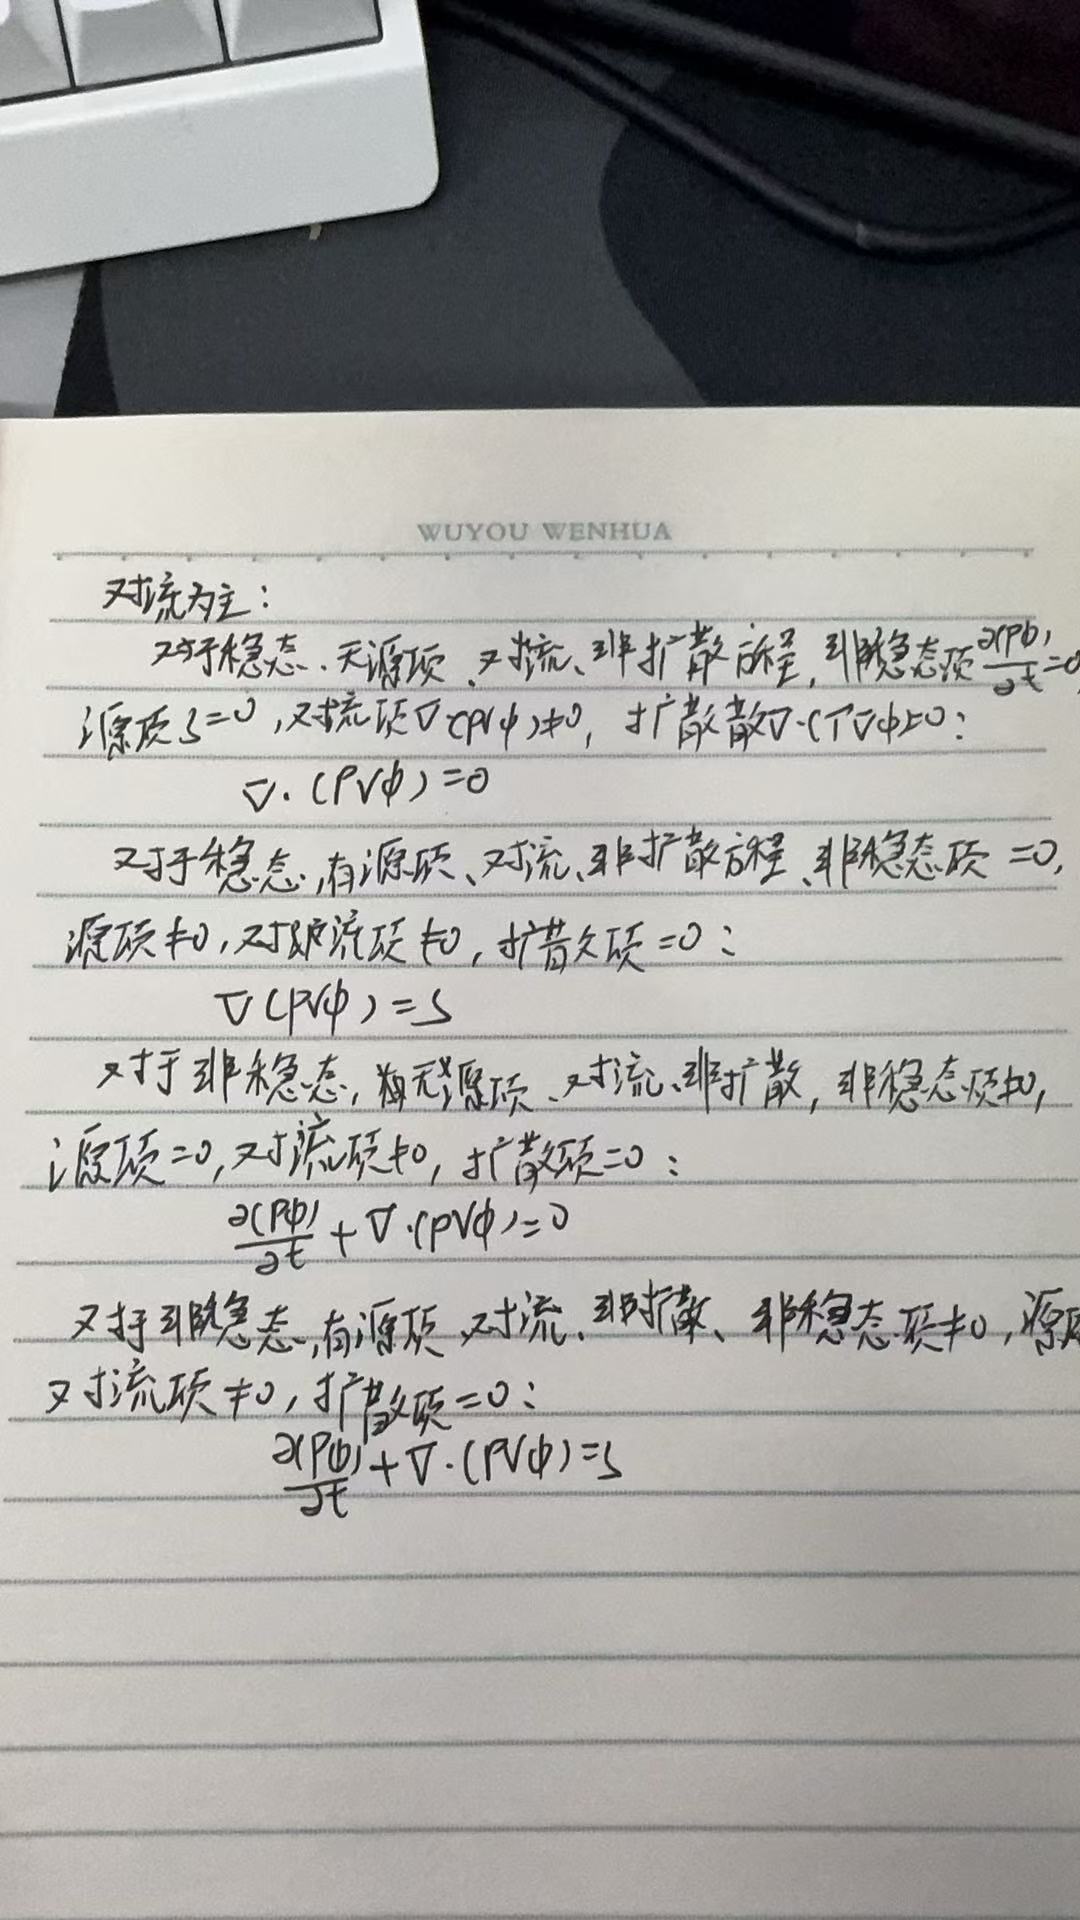 WUYOU WENHUA
对流为主：
对于稳态、无源项、对流、非扩散方程，非稳态项∂(ρφ)/∂t=0,
源项S=0，对流项∇·(ρVφ)≠0，扩散散∇·(Γ∇φ)=0：
∇·(ρVφ)=0
对于稳态，有源项、对流、非扩散方程、非稳态项=0，
源项≠0，对流项≠0，扩散项=0：
∇(ρVφ)=S
对于非稳态，无源项、对流、非扩散，非稳态项≠0，
源项=0，对流项≠0，扩散项=0：
∂(ρφ)/∂t+∇·(ρVφ)=0
对于非稳态，有源项、对流、非扩散、非稳态项≠0，源项
对流项≠0，扩散项=0：
∂(ρφ)/∂t+∇·(ρVφ)=S